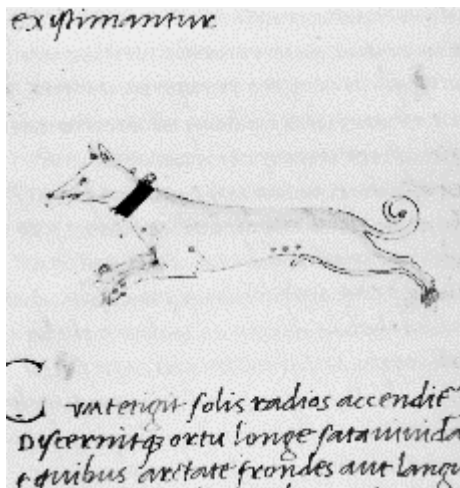 existimantur
solis radios accendit
Discernitq; ortu longe sata uiuida
quibus aretate frondes aut langu